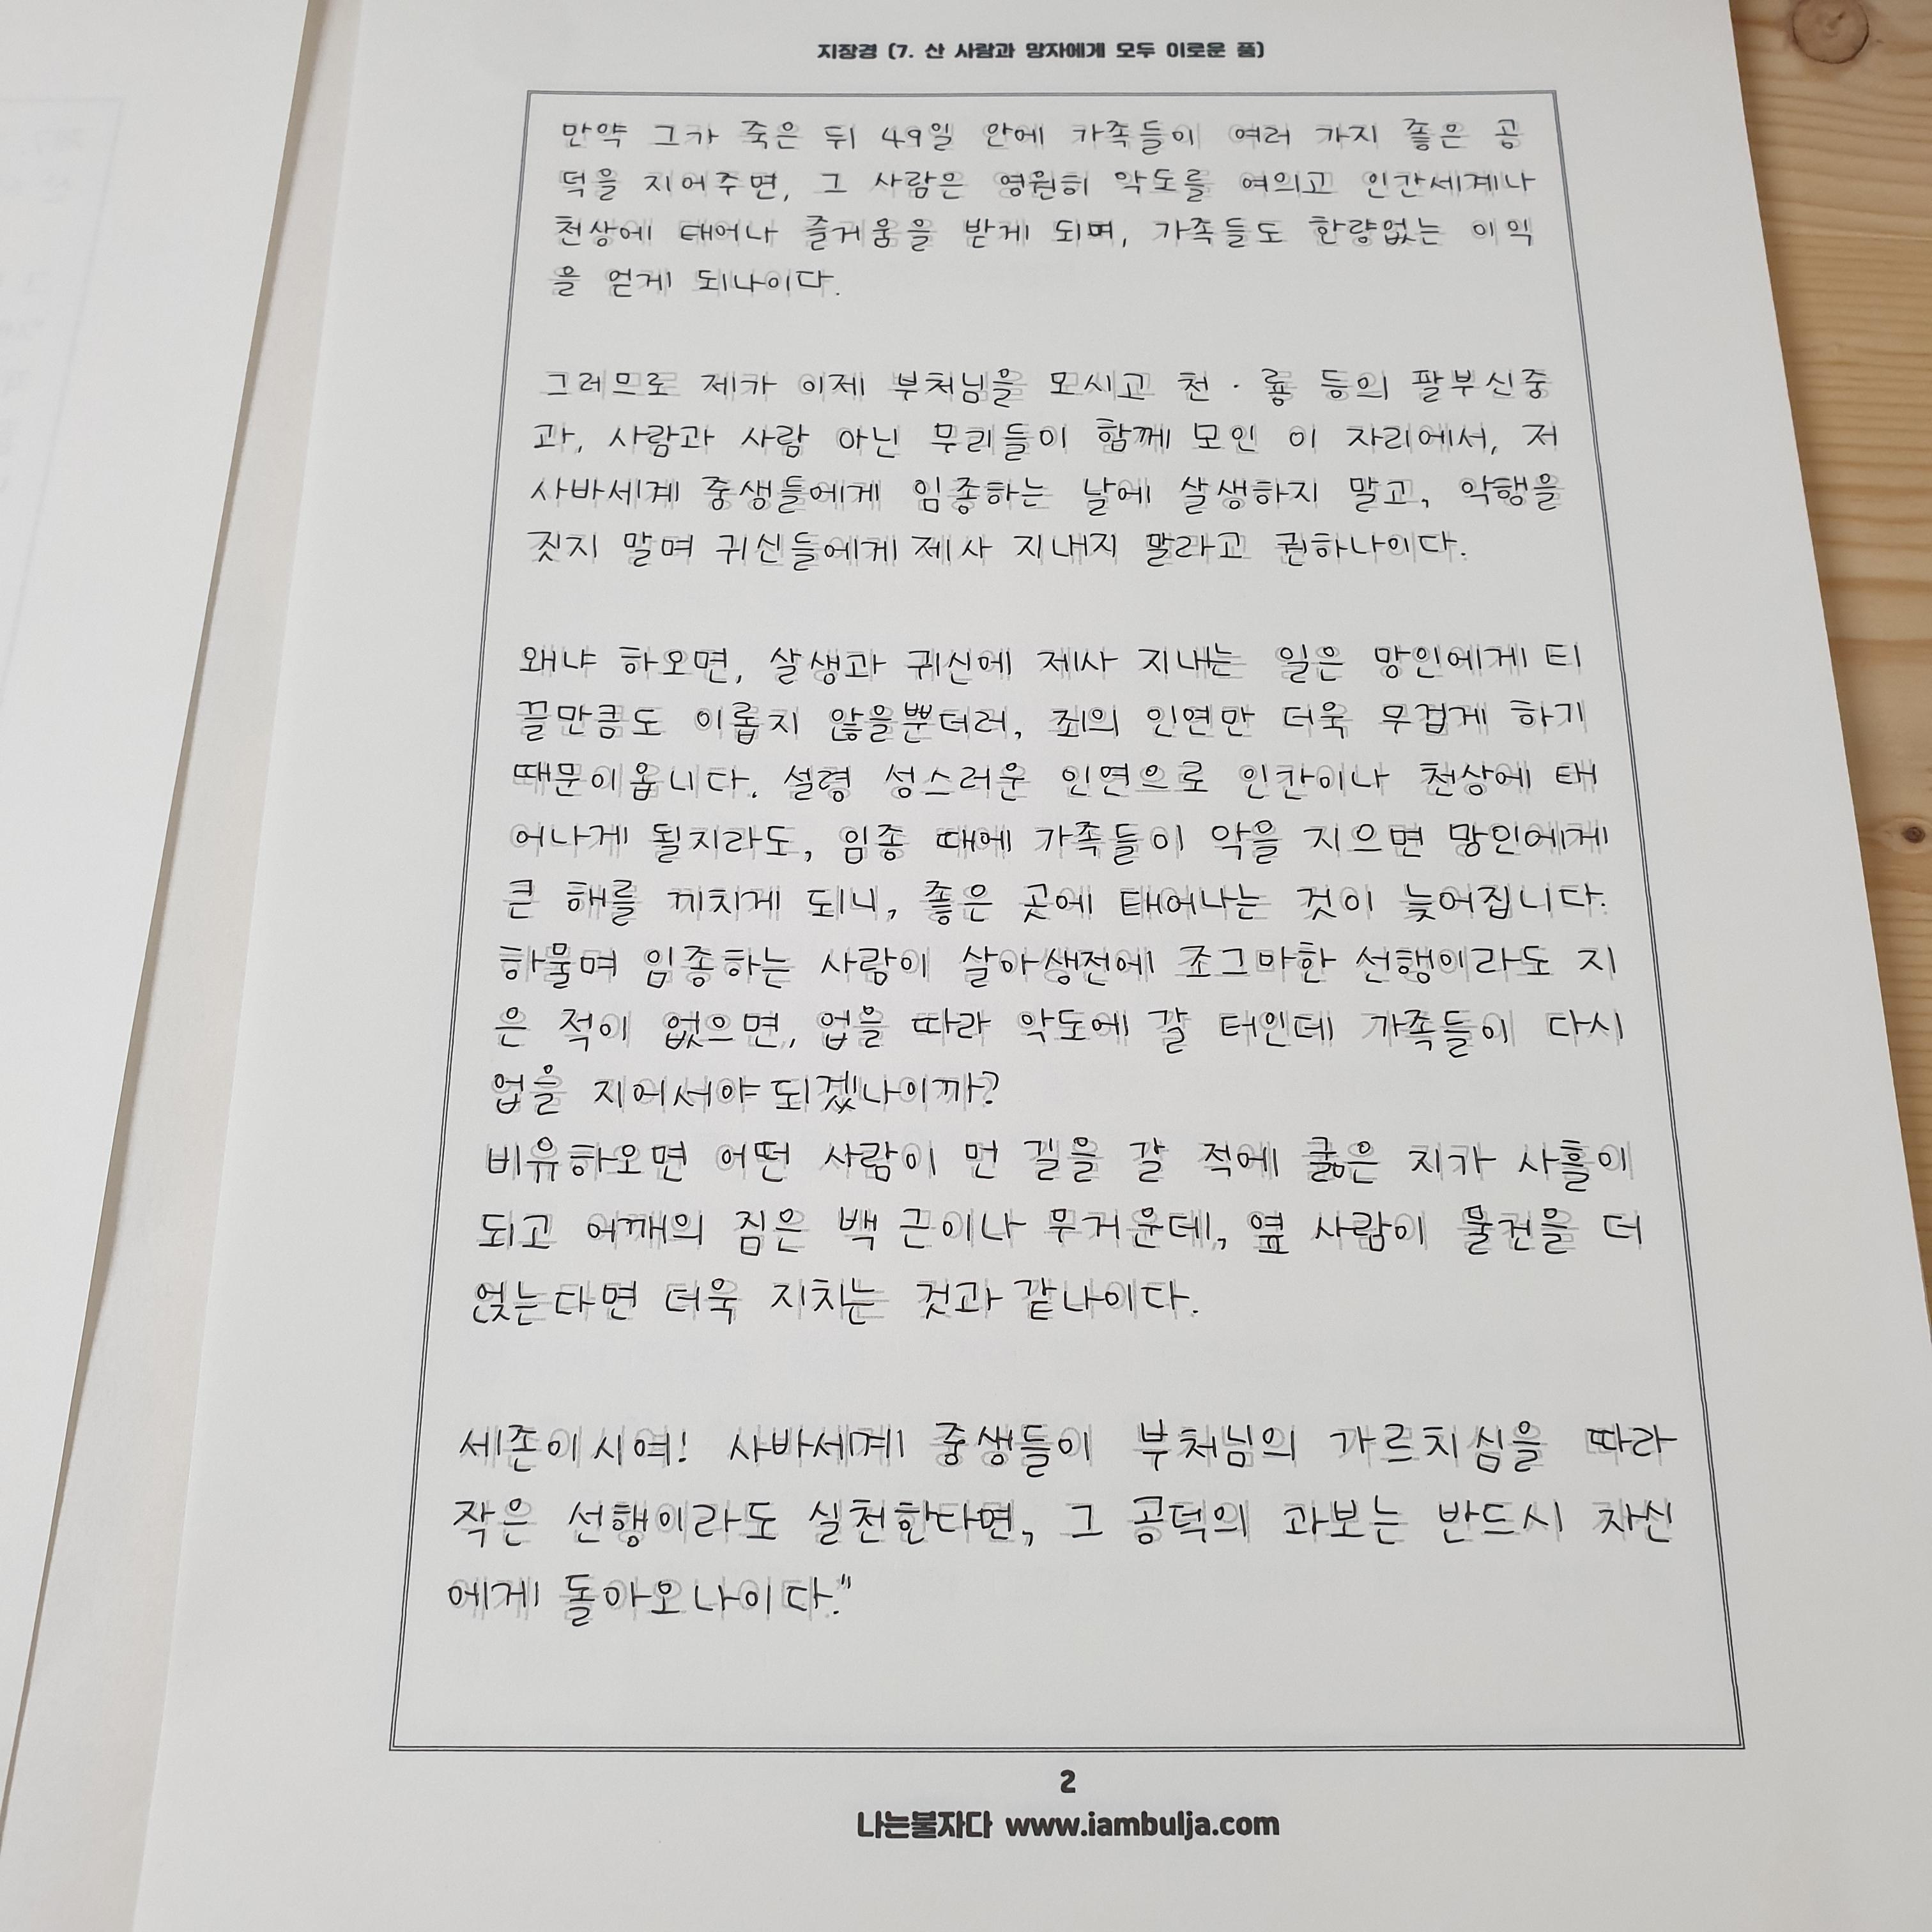 지장경 (7. 산 사람과 망자에게 모두 이로운 품)
만약 그가 죽은 뒤 49일 안에 가족들이 여러 가지 좋은 공
덕을 지어주면, 그 사람은 영원히 악도를 여의고 인간세계나
천상에 태어나 즐거움을 받게 되며, 가족들도 한량없는 이익
을 얻게 되나이다.
그러므로 제가 이제 부처님을 모시고 천·룡 등의 팔부신중
과, 사람과 사람 아닌 무리들이 함께 모인 이 자리에서, 저
사바세계 중생들에게 임종하는 날에 살생하지 말고, 악행을
짓지 말며 귀신들에게 제사 지내지 말라고 권하나이다.
왜냐 하오면, 살생과 귀신에 제사 지내는 일은 망인에게 티
끌만큼도 이롭지 않을뿐더러, 죄의 인연만 더욱 무겁게 하기
때문이옵니다. 설령 성스러운 인연으로 인간이나 천상에 태
어나게 될지라도, 임종 때에 가족들이 악을 지으면 망인에게
큰 해를 끼치게 되니, 좋은 곳에 태어나는 것이 늦어집니다.
하물며 임종하는 사람이 살아생전에 조그마한 선행이라도 지
은 적이 없으면, 업을 따라 악도에 갈 터인데 가족들이 다시
업을 지어서야 되겠나이까?
비유하오면 어떤 사람이 먼 길을 갈 적에 굶은 지가 사흘이
되고 어깨의 짐은 백 근이나 무거운데, 옆 사람이 물건을 더
얹는다면 더욱 지치는 것과 같나이다.
세존이시여! 사바세계 중생들이 부처님의 가르치심을 따라
작은 선행이라도 실천한다면, 그 공덕의 과보는 반드시 자신
에게 돌아오나이다."
2
나는불자다 www.iambulja.com